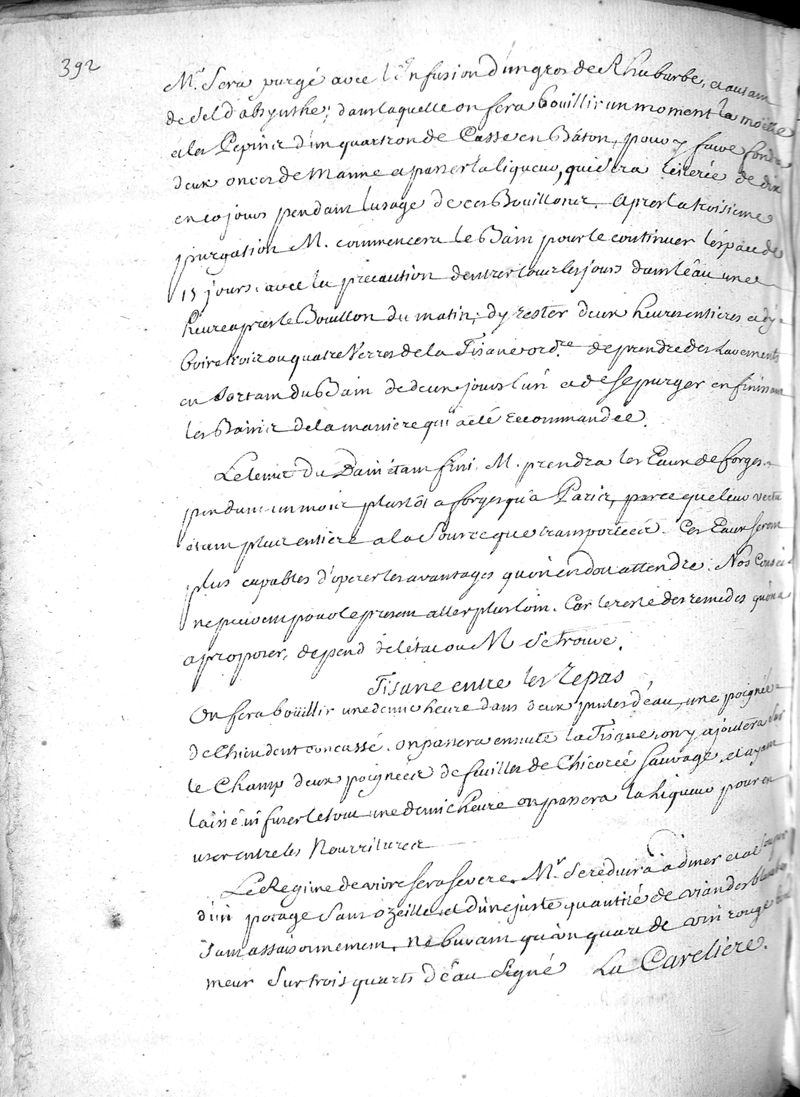 392
Mr. sera purgé avec l'Infusion d'un gros de Rhubarbe, et autant
de sel d'absynthe; dans laquelle on fera bouillir un moment la moëlle
et les Pepins d'un quartron de Casse en Bâton, pour y faire fondre
deux onces de Manne et passer la liqueur, qui sera reiterée de dix
en 10 jours pendant l'usage de ces Bouillons. Apres la troisieme
purgation M. commencera le Bain pour le continuer l'espace de
15 jours. avec la précaution d'entrer tous les jours dans l'eau une
heure apres le Bouillon du matin, d'y rester deux heures entieres et d'y
boire trois ou quatre Verres de la Tisane ordre. de prendre des Lavements
en sortant du Bain de deux jours l'un et de se purger en finissant
les Bains de la maniere qui a eté recommandée.
Le tems du Bain étant fini. M. prendra les Eaux de forges
pendant un mois plustôt a forges qu'a Paris, parce que leur vertu
étant plus entiere a la source que transportées. Ces Eaux seront
plus capables d'operer les avantages qu'on en doit attendre. Nos Conseils
ne peuvent pour le present aller plus loin. Car le reste des remedes qu'on a
a proposer, depend de l'état ou M se trouve.
Tisane entre les repas
On fera boüillir une demie heure dans deux pintes d'eau, une poignée
de Chiendent concassé. on passera ensuite la Tisane, on y ajoutera sur
le Champ deux poignées de feuilles de Chicorée sauvage, et ayant
laissé infuser le tout une demie heure on passera la liqueur pour en
user entre les Nourritures
Le Regime de vivre sera severe. Mr. se reduira a diner et a souper
d'un potage sans ozeille et d'une juste quantité de viandes blanches
sans assaisonnement, ne buvant qu'un quart de vin rouge
meur sur trois quarts d'eau Signé La Careliere.